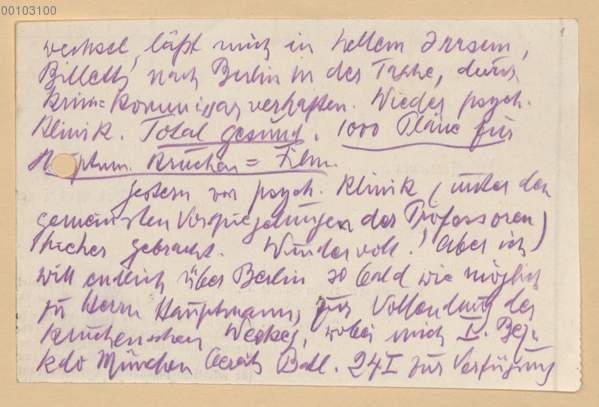 00103100
wechsel, läßt mich in hellem Irrsein,
Billett nach Berlin in der Tasche, durch
Krim=Kommissar verhaften. Wieder psych.
Klinik. Total gesund. 1000 Pläne für
Film.
gestern von psych. Klinik (unter den
gemeinsten Vorspiegelungen der Professoren)
hierher gebracht. Wundervoll! Aber ich
will endlich über Berlin so bald wie möglich
zu Herrn Hauptmann, zur Vollendung des
Werkes, wobei mich I. Bez.
Kdo München bereits Batl. 24 I zur Verfügung